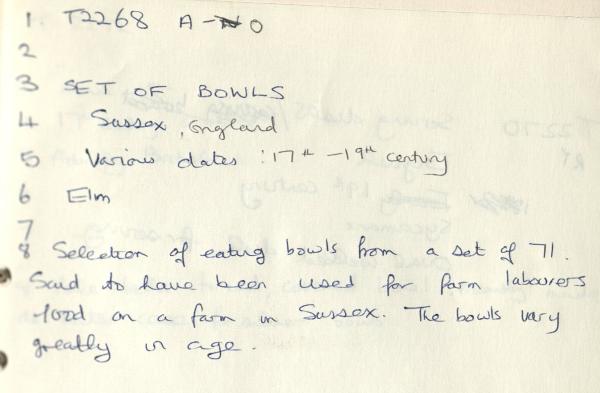 1 T2268 A - O
2
3 SET OF BOWLS
4 Sussex, England
5 Various dates : 17th - 19th century
6 Elm
7
8 Selection of eating bowls from a set of 71.
Said to have been used for farm labourers
food on a farm in Sussex. The bowls vary
greatly in age.